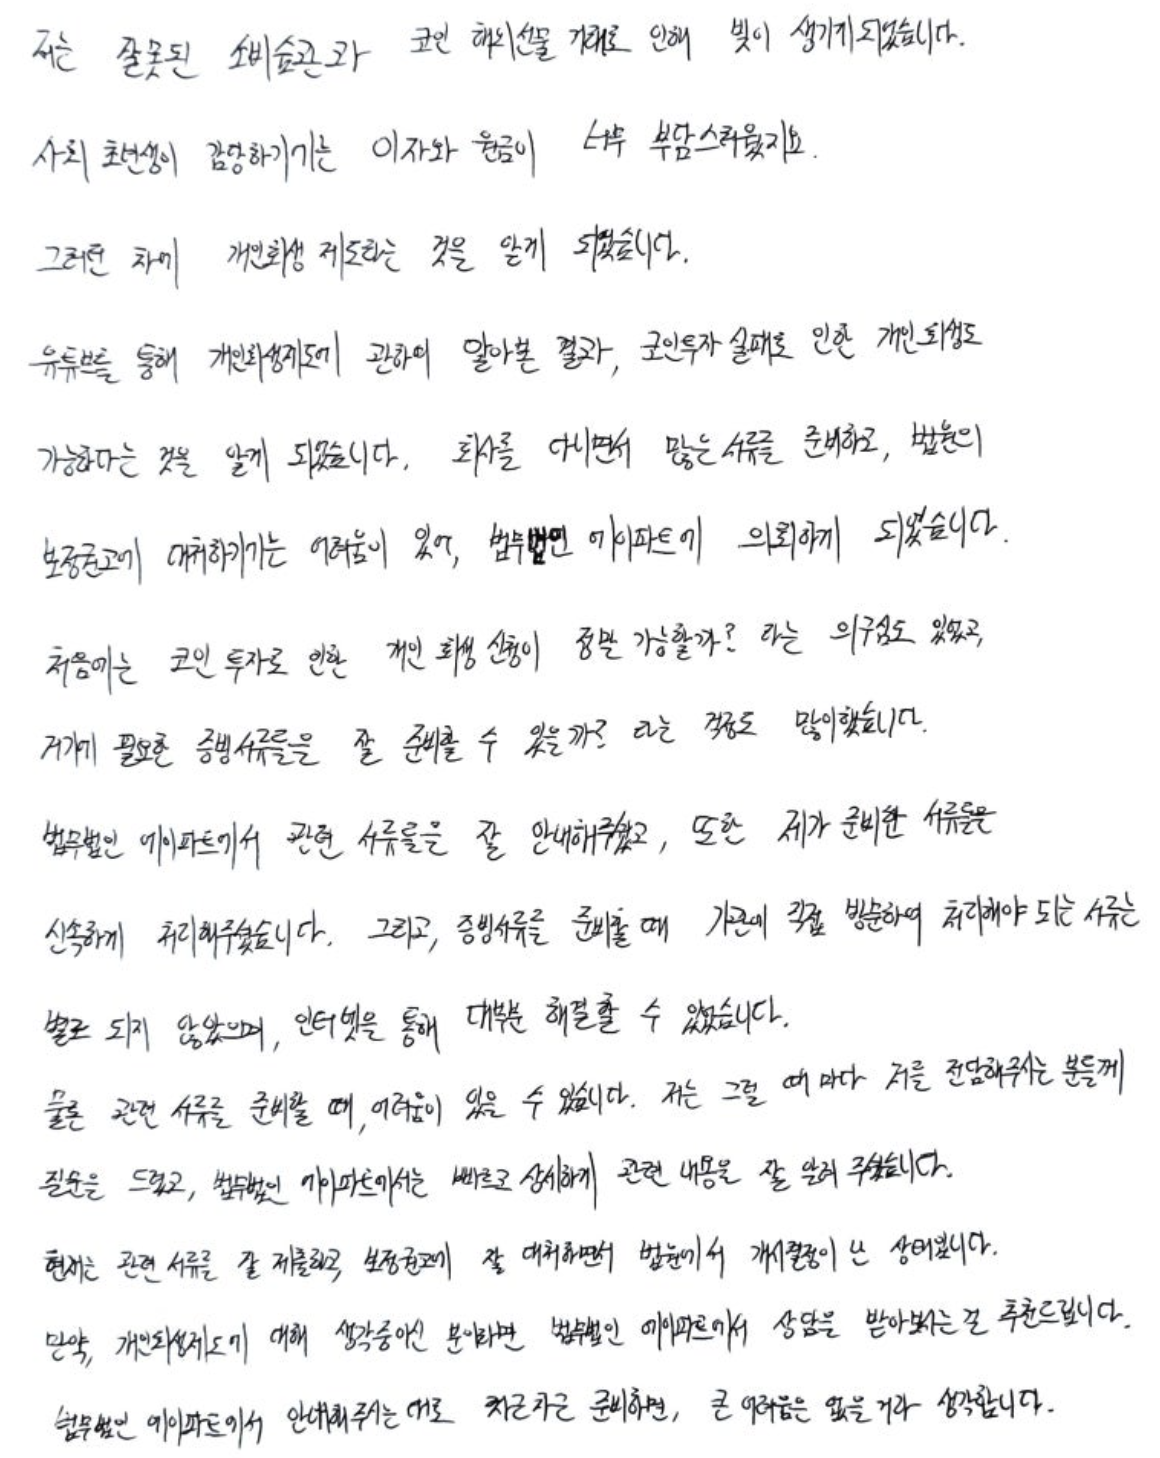 저는 잘못된 소비습관과 코인 해외선물 거래로 인해 빚이 생기게되었습니다.
사회 초년생이 감당하기에는 이자와 원금이 너무 부담스러웠지요.
그러던 차에 개인회생 제도라는 것을 알게 되었습니다.
유튜브를 통해 개인회생제도에 관하여 알아본 결과, 코인투자 실패로 인한 개인회생도
가능하다는 것을 알게 되었습니다. 회사를 다니면서 많은 서류를 준비하고, 법원의
보정권고에 대처하기에는 어려움이 있어, 법무법인 에이파트에 의뢰하게 되었습니다.
처음에는 코인 투자로 인한 개인 회생 신청이 정말 가능할까? 라는 의구심도 있었고,
거기에 필요한 증빙서류들을 잘 준비할 수 있을까? 라는 걱정도 많이했습니다.
법무법인 에이파트에서 관련 서류들을 잘 안내해주셨고, 또한 제가 준비한 서류들을
신속하게 처리해주셨습니다. 그리고, 증빙서류를 준비할 때 기관에 직접 방문하여 처리해야 되는 서류는
별로 되지 않았으며, 인터넷을 통해 대부분 해결할 수 있었습니다.
물론 관련 서류를 준비할 때, 어려움이 있을 수 있습니다. 저는 그럴 때 마다 저를 전담해주시는 분들께
질문을 드렸고, 법무법인 에이파트에서는 빠르고 상세하게 관련 내용을 잘 알려 주셨습니다.
현재는 관련 서류를 잘 제출하고, 보정권고에 잘 대처하면서 법원에서 개시결정이 난 상태입니다.
만약, 개인회생제도에 대해 생각중이신 분이라면 법무법인 에이파트에서 상담을 받아보시는 걸 추천드립니다.
법무법인 에이파트에서 안내해주시는 대로 차근차근 준비하면, 큰 어려움은 없을 거라 생각합니다.